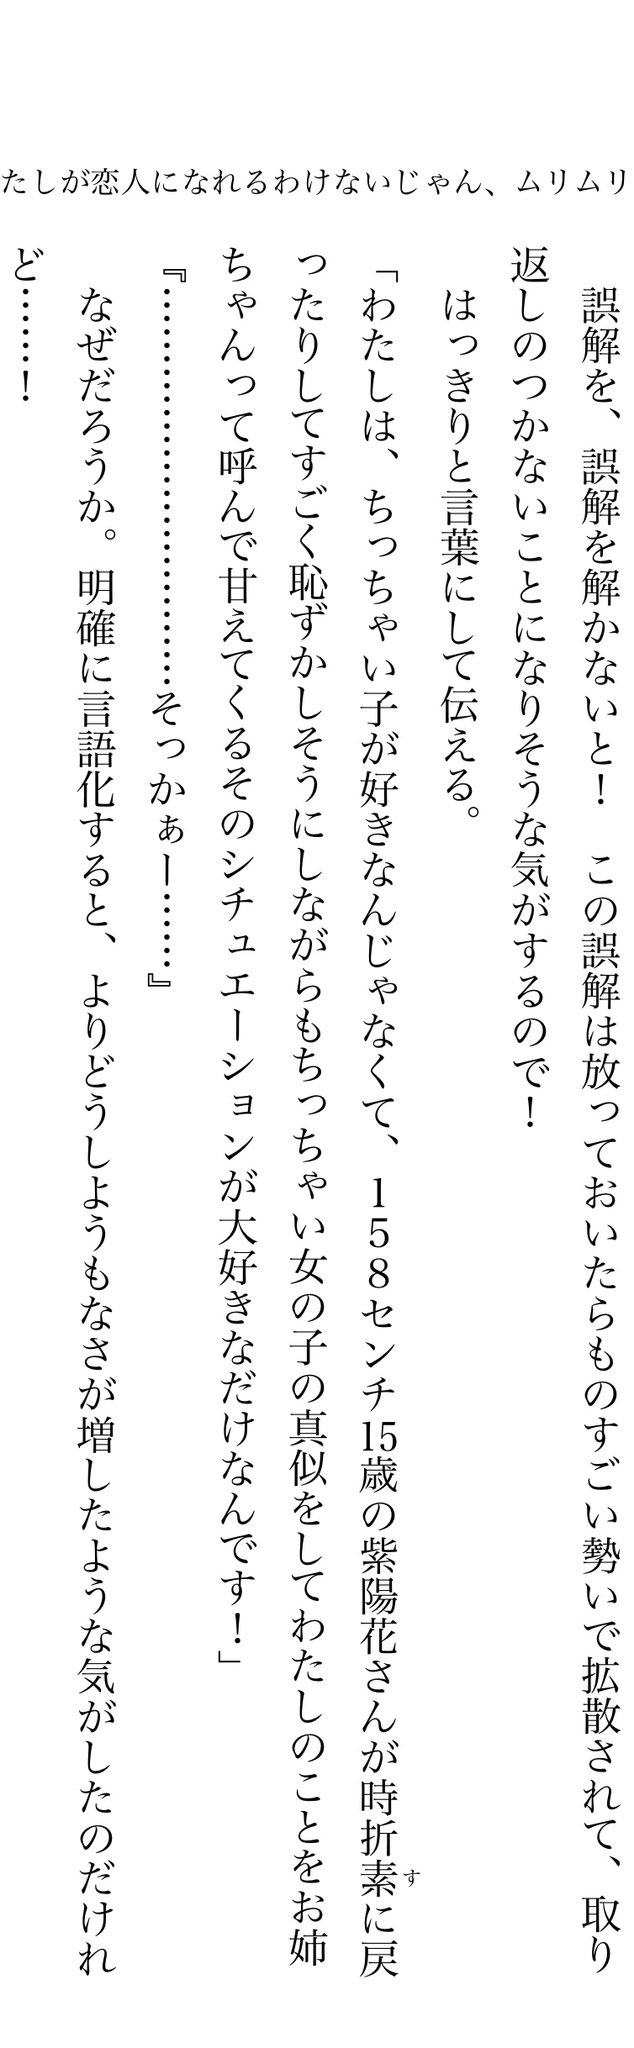 たしが恋人になれるわけないじゃん、ムリムリ
誤解を、誤解を解かないと！　この誤解は放っておいたらものすごい勢いで拡散されて、取り
返しのつかないことになりそうな気がするので！
はっきりと言葉にして伝える。
「わたしは、ちっちゃい子が好きなんじゃなくて、158センチ15歳の紫陽花さんが時折素に戻
す
ったりしてすごく恥ずかしそうにしながらもちっちゃい女の子の真似をしてわたしのことをお姉
ちゃんって呼んで甘えてくるそのシチュエーションが大好きなだけなんです！」
『……………………………そっかぁー……』
なぜだろうか。明確に言語化すると、よりどうしようもなさが増したような気がしたのだけれ
ど……！